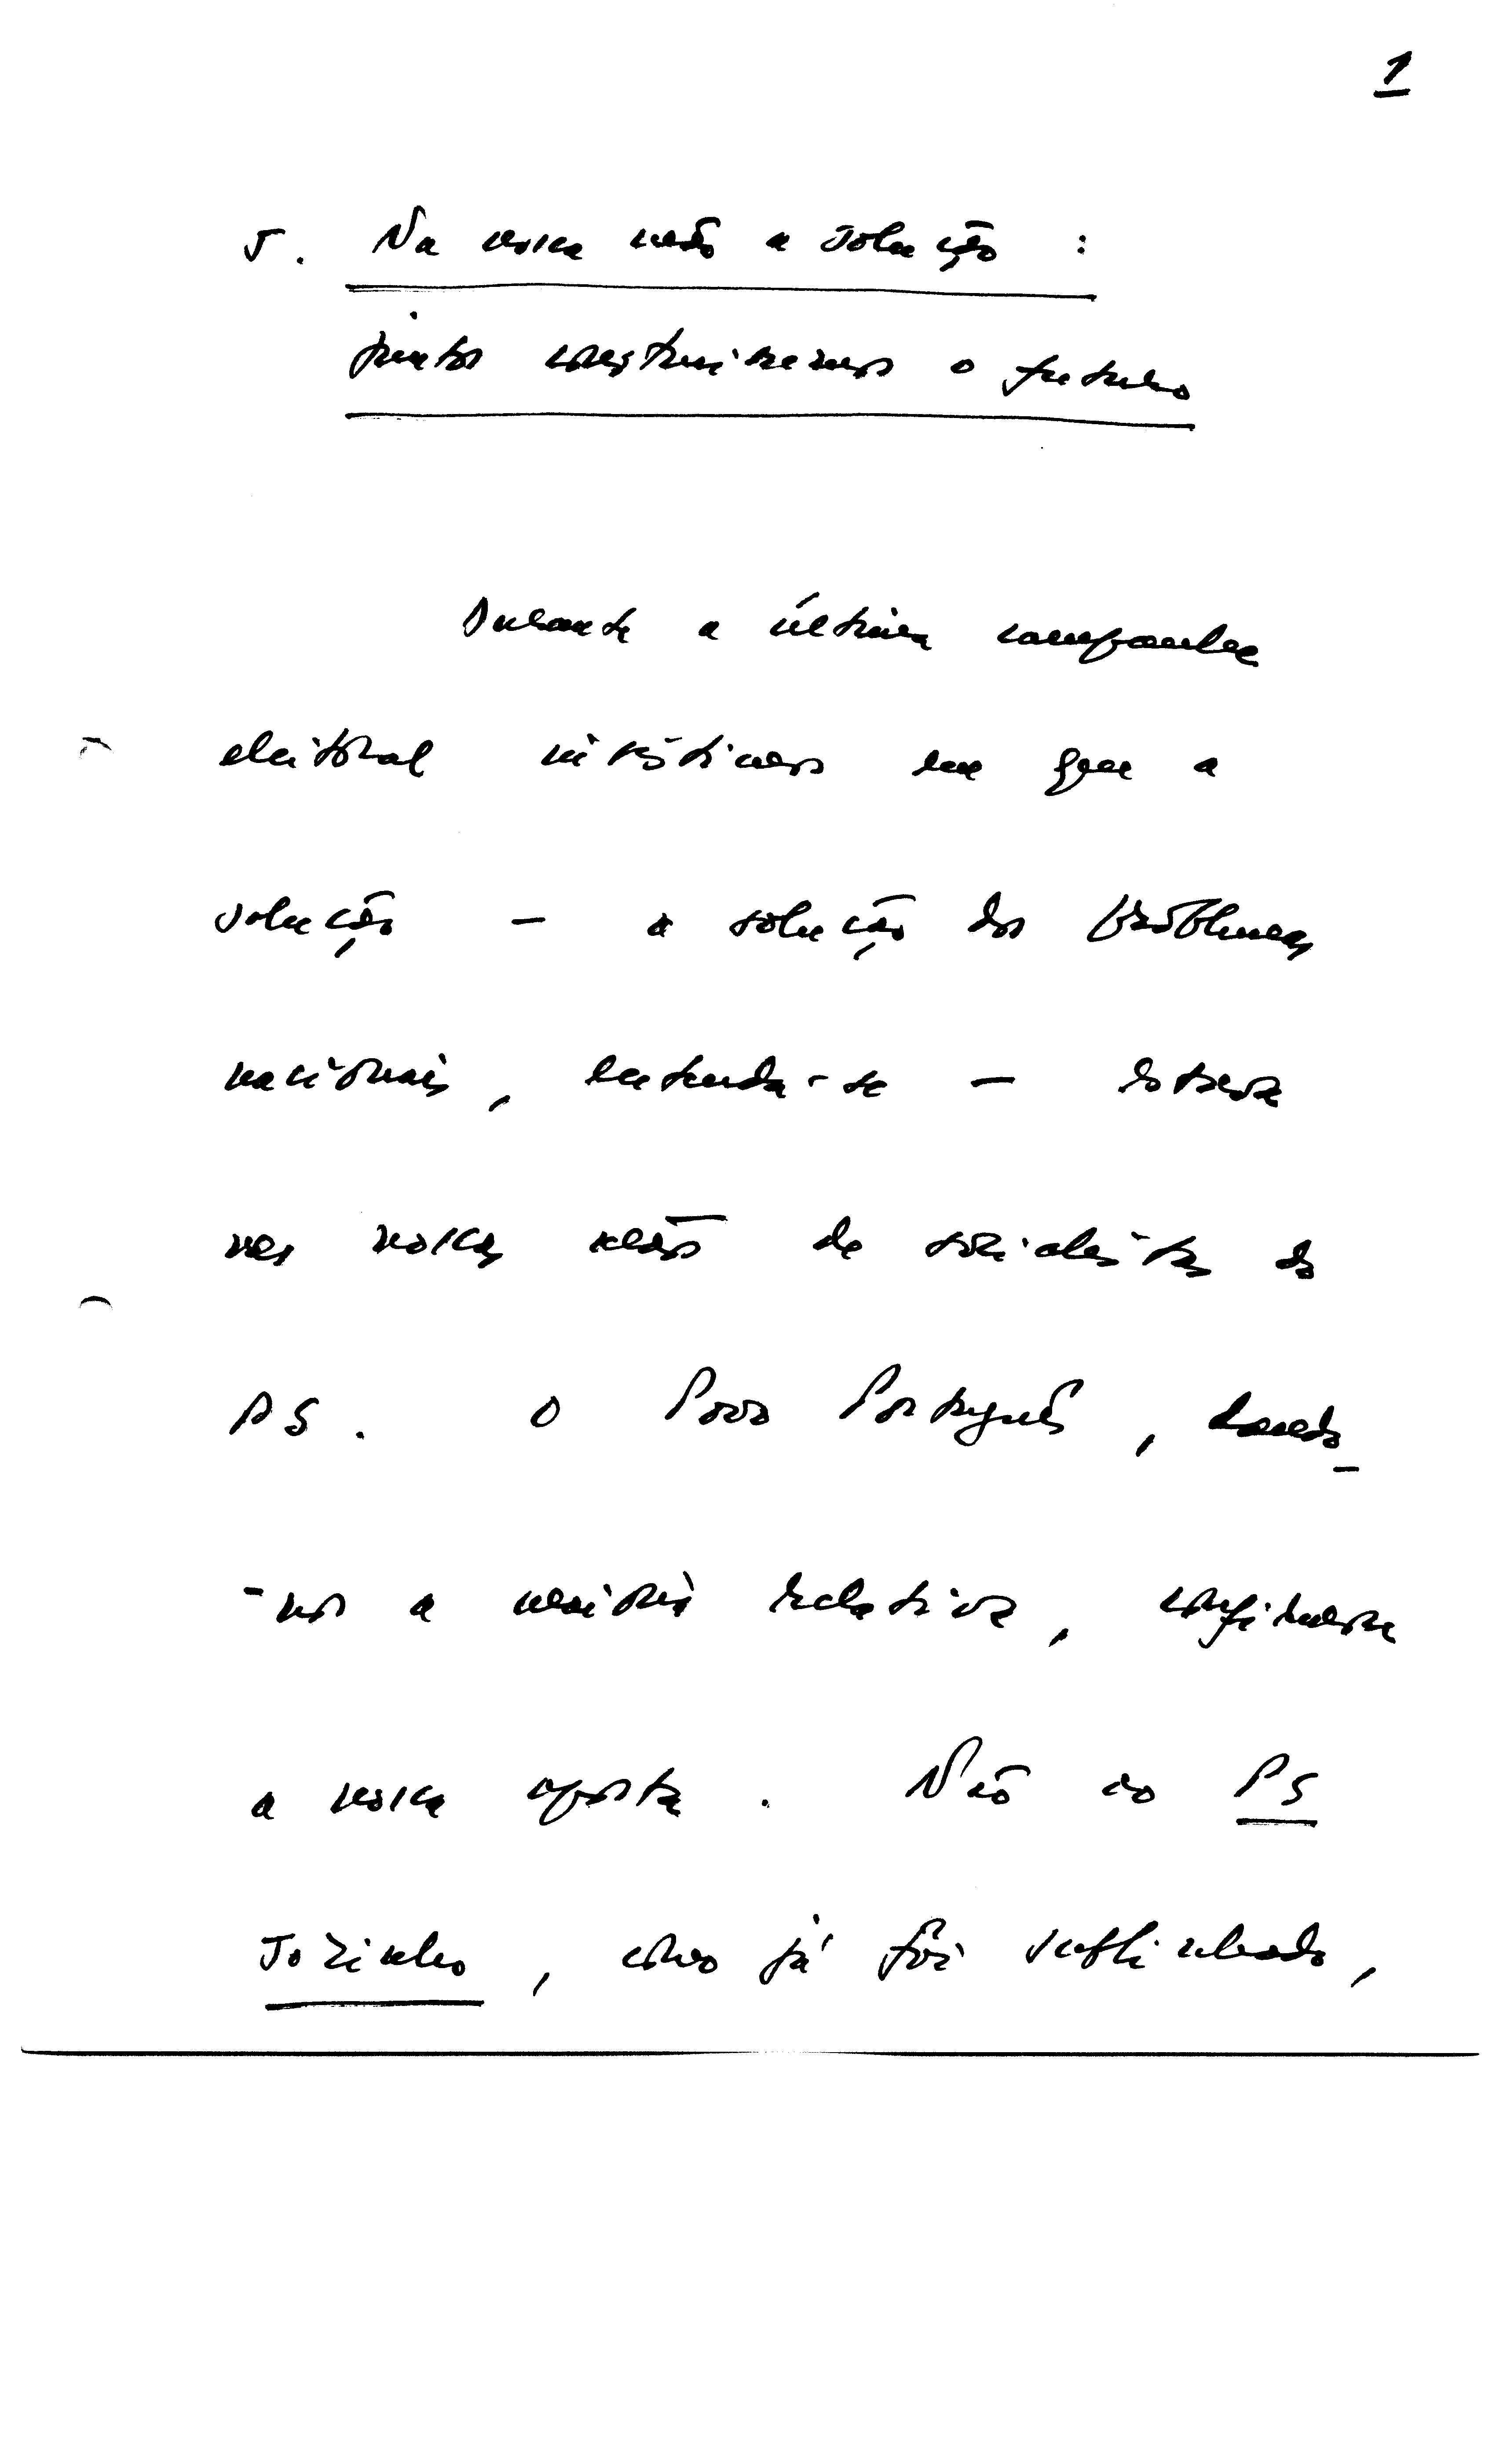 1
5. Na nossa mão a solução :
juntos construiremos o futuro
Durante a última campanha
eleitoral insistimos em que a
solução - a solução dos problemas
nacionais, entenda-se - estava
nas nossas mãos de socialistas do
PS. O Povo Português, dando-
-nos a maioria relativa, confirmou
a nossa aposta. Não ao PS
sozinho, como já foi sublinhado,